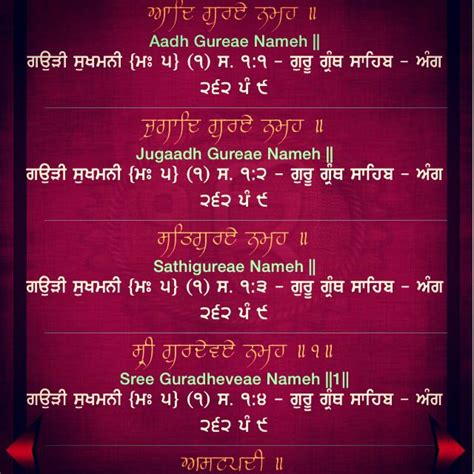 ਆਦਿ ਗੁਰਏ ਨਮਹ ॥
Aadh Gureae Nameh ||
ਗਉੜੀ ਸੁਖਮਨੀ {ਮਃ ੫} (੧) ਸ. ੧:੧ - ਗੁਰੂ ਗ੍ਰੰਥ ਸਾਹਿਬ - ਅੰਗ
੨੬੨ ਪੰ ੯
ਜੁਗਾਦਿ ਗੁਰਏ ਨਮਹ ॥
Jugaadh Gureae Nameh ||
ਗਉੜੀ ਸੁਖਮਨੀ {ਮਃ ੫} (੧) ਸ. ੧:੨ - ਗੁਰੂ ਗ੍ਰੰਥ ਸਾਹਿਬ - ਅੰਗ
੨੬੨ ਪੰ ੯
ਸਤਿਗੁਰਏ ਨਮਹ ॥
Sathigureae Nameh ||
ਗਉੜੀ ਸੁਖਮਨੀ {ਮਃ ੫} (੧) ਸ. ੧:੩ - ਗੁਰੂ ਗ੍ਰੰਥ ਸਾਹਿਬ - ਅੰਗ
੨੬੨ ਪੰ ੯
ਸ੍ਰੀ ਗੁਰਦੇਵਏ ਨਮਹ ॥੧॥
Sree Guradheveae Nameh ||1||
ਗਉੜੀ ਸੁਖਮਨੀ {ਮਃ ੫} (੧) ਸ. ੧:੪ - ਗੁਰੂ ਗ੍ਰੰਥ ਸਾਹਿਬ - ਅੰਗ
੨੬੨ ਪੰ ੯
ਅਸਟਪਦੀ ॥